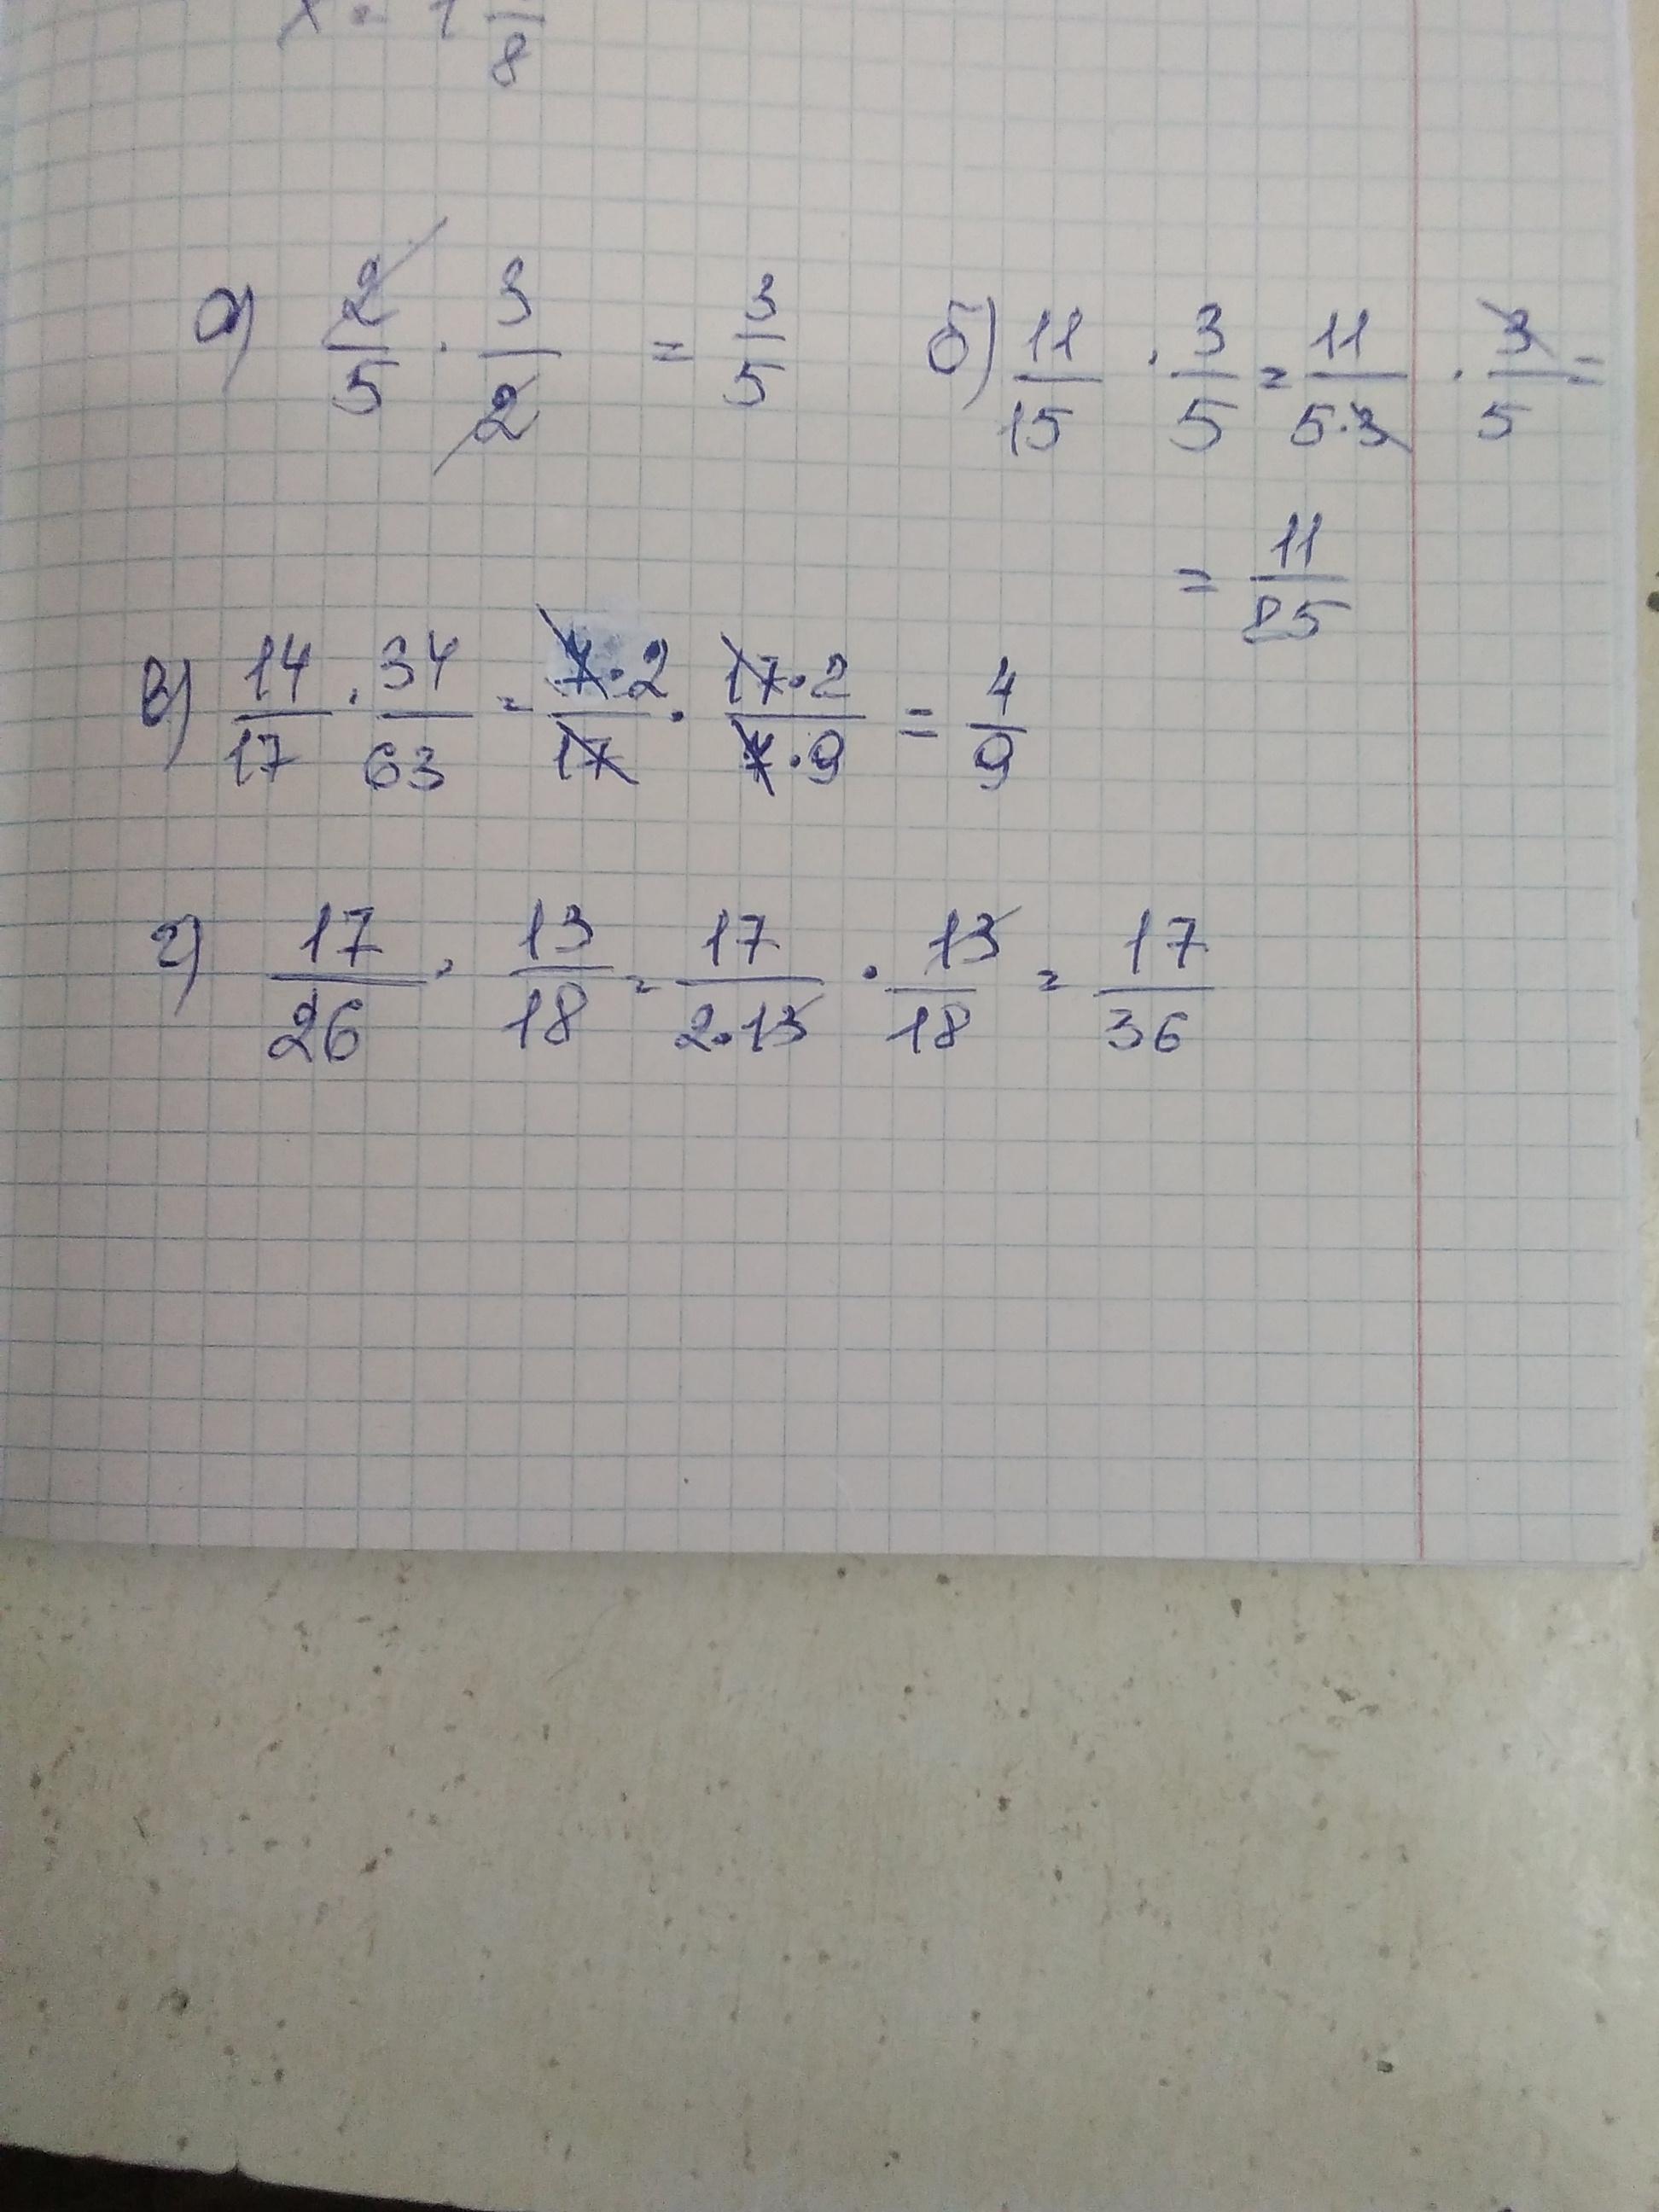 x = 1 —/8
а) 2/5 · 3/2 = 3/5 б) 11/15 · 3/5 = 11/5·3 · 3/5 =
= 11/25
в) 14/17 · 34/63 = 7·2/17 · 17·2/7·9 = 4/9
г) 17/26 · 13/18 = 17/2·13 · 13/18 = 17/36